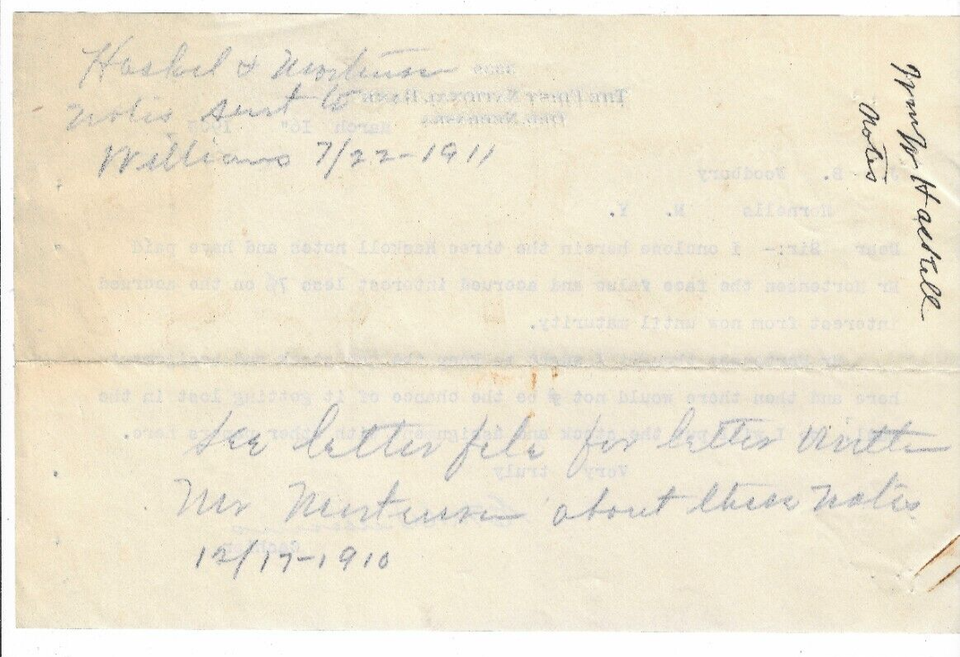 Haskel & Mortensen
Notes sent to
Williams 7/22-1911
Wm W Haskell
Notes
3339
THE FIRST NATIONAL BANK
ORD, NEBRASKA
March 16" 190
B. Woodbury
Hornells N. Y.
Dear Sir:- I enclose herein the three Haskell notes and have paid
Mr Mortensen the face value and accrued interest less 7% on the accrued
interest from now until maturity.
Mr Mortensen
here and then there would not be the chance of it getting lost in the
I the stock and assign with other here.
Very truly
Cashier
See letter file for letter written
Mr Mortensen about these notes
12/17-1910